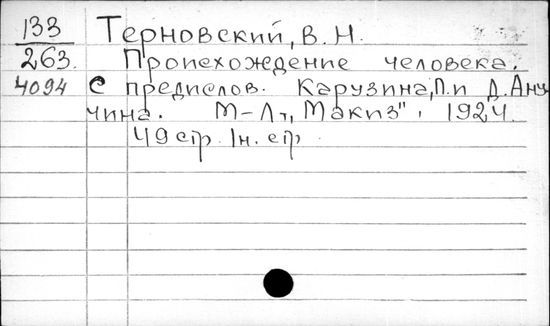 133 Терновский, В. Н.
263. Происхождение человека.
4094 С предислов. Карузина, П. и Д. Ану
чина. М-Л., „Макиз", 1924.
49 стр. 1н. стр.